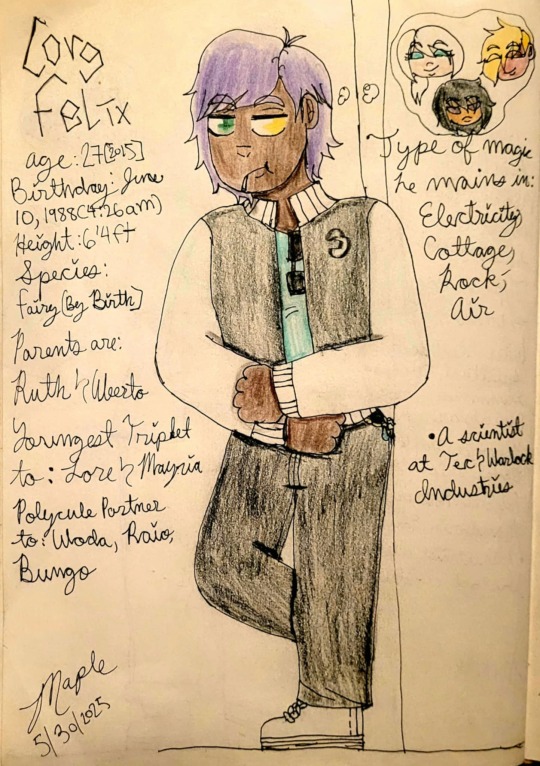 Corg
Felix
age: 27[2015]
Birthday: June
10, 1988(4:26am)
Height: 6'4ft
Species:
Fairy[By Birth]
Parents are:
Ruth &
Youngest Triplet
to: Lore &
Polycule Partner
to: Woda, Raio,
Bungo
Maple
5/30/2025
Type of magic
he mains in:
Electricity,
Cottage,
Rock,
Air
•A scientist
at Tec & Warlock
Industries